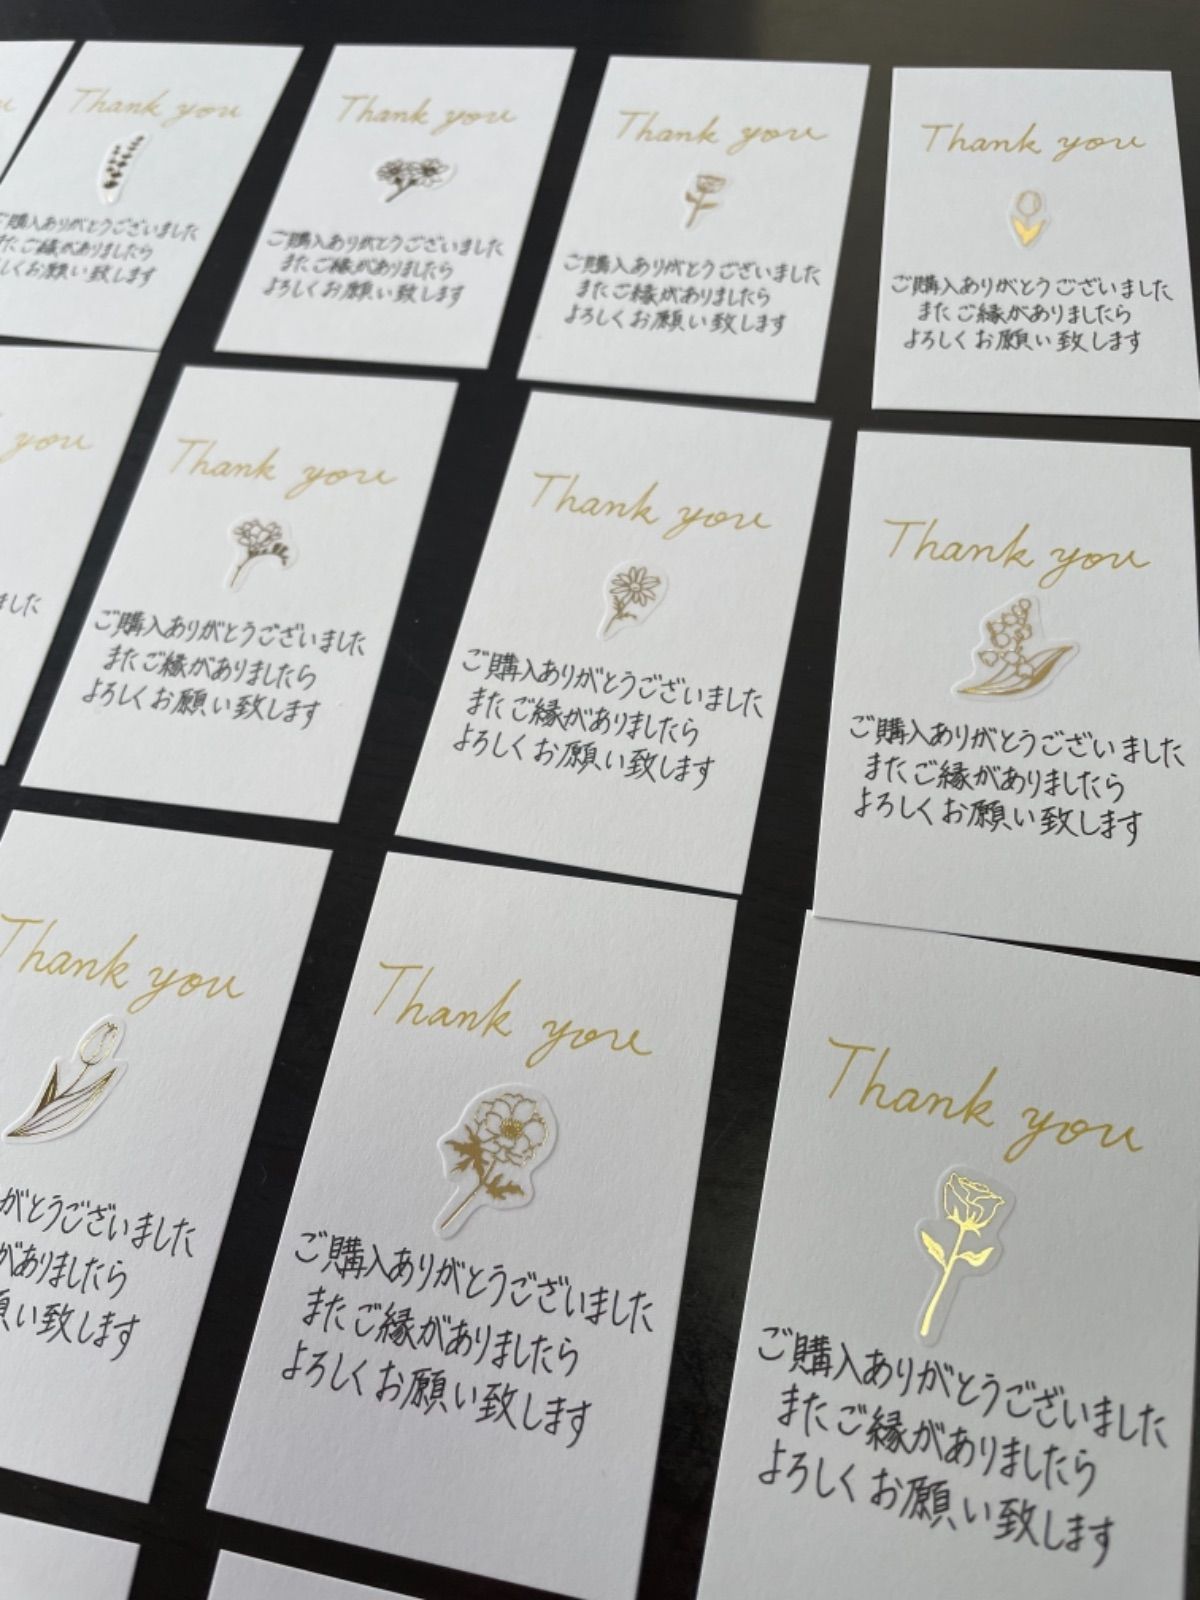 Thank you
ご購入ありがとうございました
またご縁がありましたら
よろしくお願い致します
Thank you
ご購入ありがとうございました
またご縁がありましたら
よろしくお願い致します
Thank you
ご購入ありがとうございました
またご縁がありましたら
よろしくお願い致します
Thank you
ご購入ありがとうございました
またご縁がありましたら
よろしくお願い致します
you
ました
Thank you
ご購入ありがとうございました
またご縁がありましたら
よろしくお願い致します
Thank you
ご購入ありがとうございました
またご縁がありましたら
よろしくお願い致します
Thank you
ご購入ありがとうございました
またご縁がありましたら
よろしくお願い致します
Thank you
がとうございました
がありましたら
願い致します
Thank you
ご購入ありがとうございました
またご縁がありましたら
よろしくお願い致します
Thank you
ご購入ありがとうございました
またご縁がありましたら
よろしくお願い致します